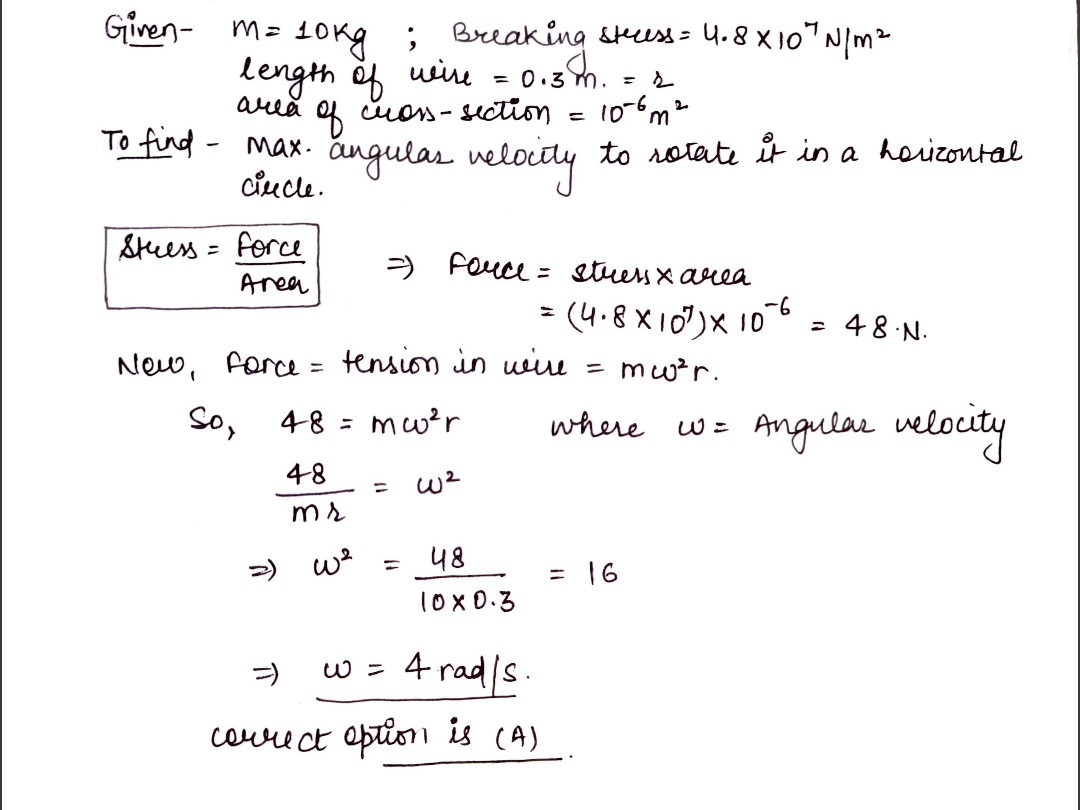 Given- m= 10kg ; Breaking stress = 4.8 x 10⁷ N/m²
length of wire = 0.3 m. = r
area of cross-section = 10⁻⁶ m²
To find - Max. angular velocity to rotate it in a horizontal
circle.
Stress = force / Area ⇒ force = stress x area
= (4.8 x 10⁷) x 10⁻⁶ = 48 N.
Now, force = tension in wire = mω²r.
So, 48 = mω²r where ω = Angular velocity
48 / mr = ω²
⇒ ω² = 48 / 10 x 0.3 = 16
⇒ ω = 4 rad/s.
correct option is (A).